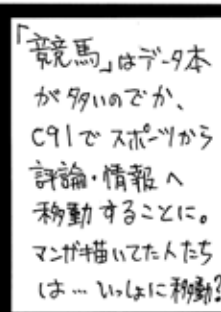 「競馬」はデータ本
が多いのでか、
C91でスポーツから
評論・情報へ
移動することに。
マンガ描いてた人たち
は…いっしょに移動?